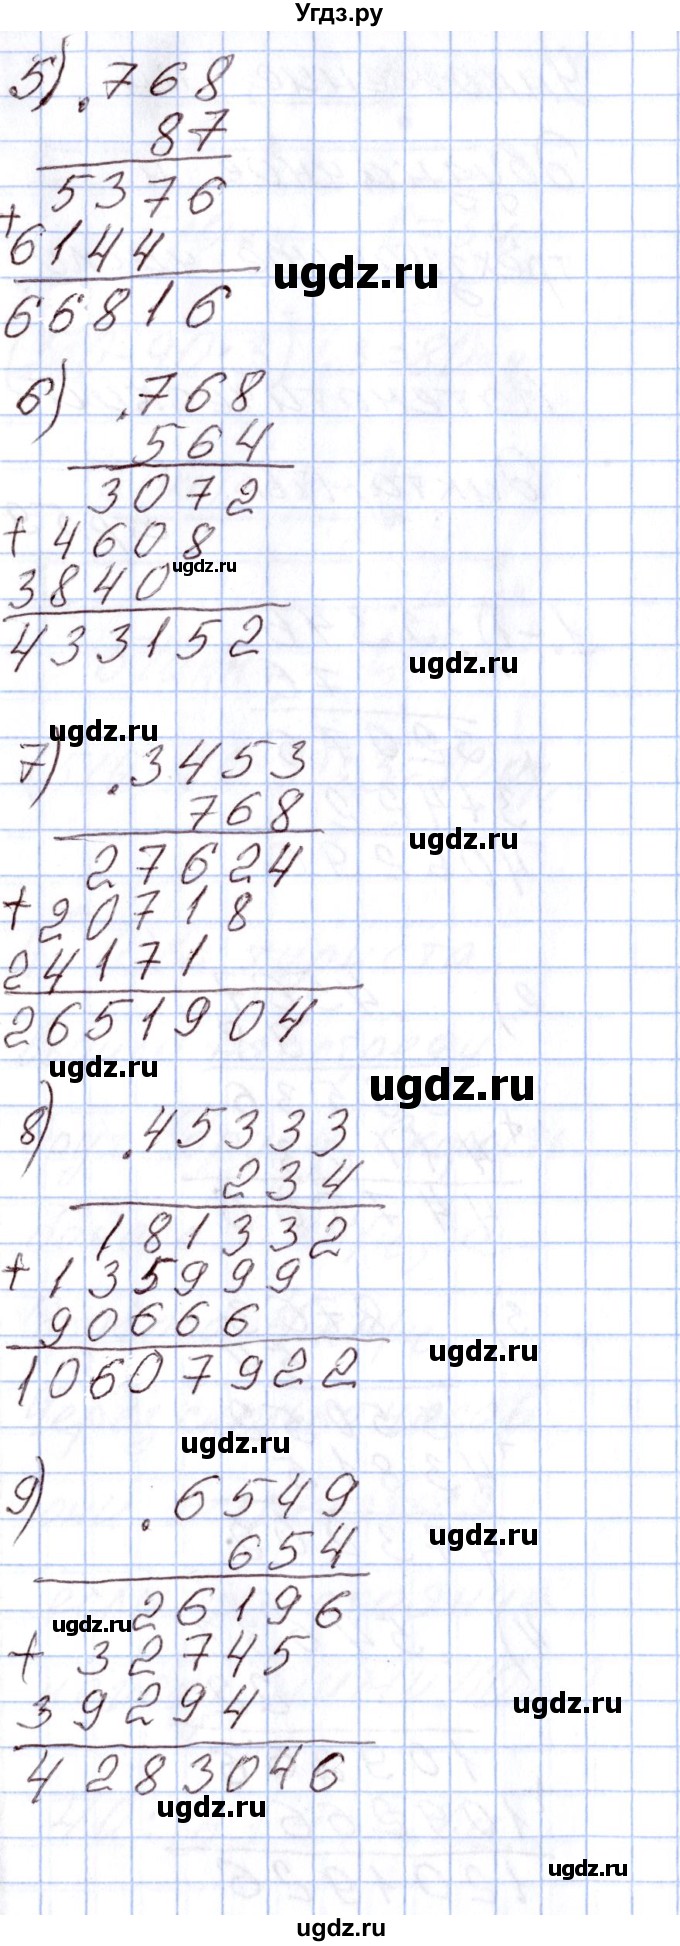 Угдз.ру
5) . 768
87
5376
+
6144
ugdz.ru
66816
6) . 768
564
3072
+ 4608
ugdz.ru
3840
433152
ugdz.ru
ugdz.ru
7) . 3453
768
ugdz.ru
27624
+ 20718
24171
2651904
ugdz.ru
ugdz.ru
8) . 45333
234
181332
+ 135999
90666
ugdz.ru
10607922
ugdz.ru
9) . 6549
ugdz.ru
654
26196
ugdz.ru
+ 32745
39294
ugdz.ru
4283046
ugdz.ru
ugdz.ru
ugdz.ru